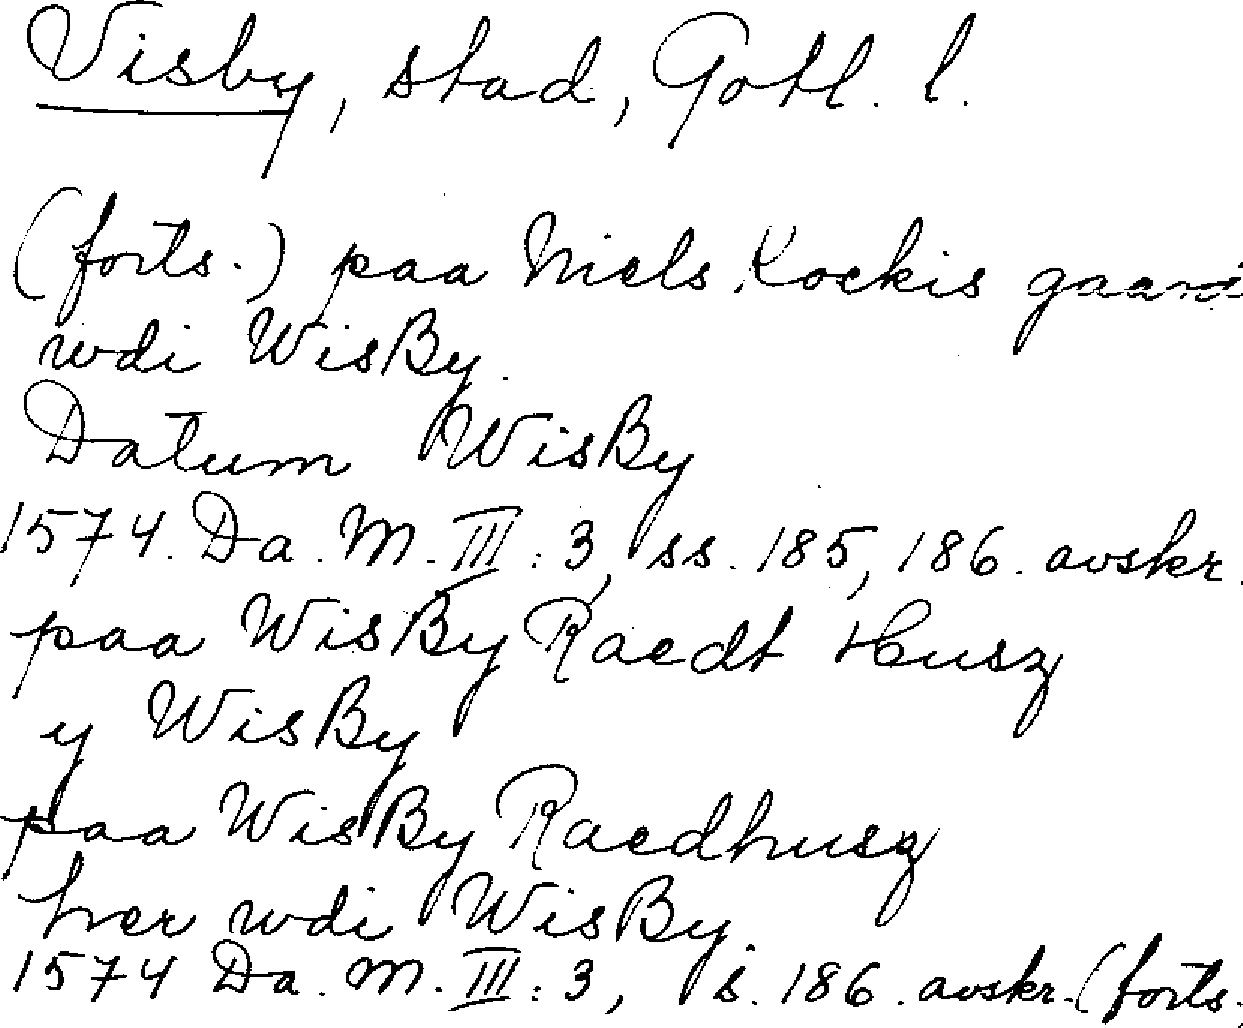 Visby, stad, Gotl. l.
(forts.) paa Niels Kockis gaard
wdi WisBy.
Datum WisBy
1574. Da. M. III: 3, ss. 185, 186. avskr.
paa WisBy Raedt Husz
y WisBy
paa WisBy Raedhusz
her wdi WisBy.
1574 Da. M. III: 3, s. 186. avskr. (forts.